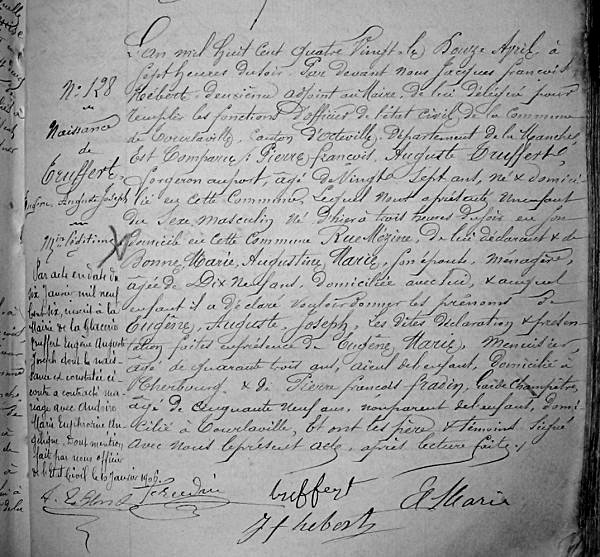 L'an mil huit cent quatre Vingt, le Douze Avril, à
Sept heures du Soir. Par devant Nous Jacques francois
Hébert deuxième adjoint au Maire de lui délégué pour
remplir les fonctions d'officier de l'état Civil de la Commune
de Tourlaville, Canton d'Octeville, Département de la Manche,
Est Comparu : Pierre francois, Auguste Truffert,
forgeron au port, agé de Vingt Sept ans, né & domici
lié en cette Commune, Lequel Nous a présenté Un enfant
du Sexe masculin Né D'hier à trois heures du soir en son
domicile en cette Commune Rue Mézine, de lui déclarant & de
Bonne, Marie, Augustine Marie, son épouse, Menagère,
agée de Dix Neuf ans, Domiciliée avec lui, & auquel
enfant il a déclaré vouloir donner les prénoms de
Eugène, Auguste, Joseph, Les dites déclaration & présen
tation faites en présence de Eugène Marie, Menuisier,
âgé de quarante trois ans, aïeul de l'enfant, Domicilié à
Cherbourg & de Pierre francois fradin, Garde Champêtre,
âgé de Cinquante Neuf ans, non parent de l'enfant, domi
cilié à Tourlaville, Et ont les père & témoins Signé
avec Nous le présent acte, après lecture faite.
N° 128
Naissance
de
Truffert,
Eugène, Auguste Joseph
Légitime
Par acte en date du
six Janvier mil neuf
cent six, inscrit à la
Mairie de la Glacerie
Truffert Eugène Auguste
Joseph dont la nais-
sance est constatée ci
contre a contracté ma
riage avec
Marie Euphrasie An
gélique. Dont mention
faite par nous officier
de l'Etat Civil le 10 Janvier 1906.
truffert
E Marie
J f hebert